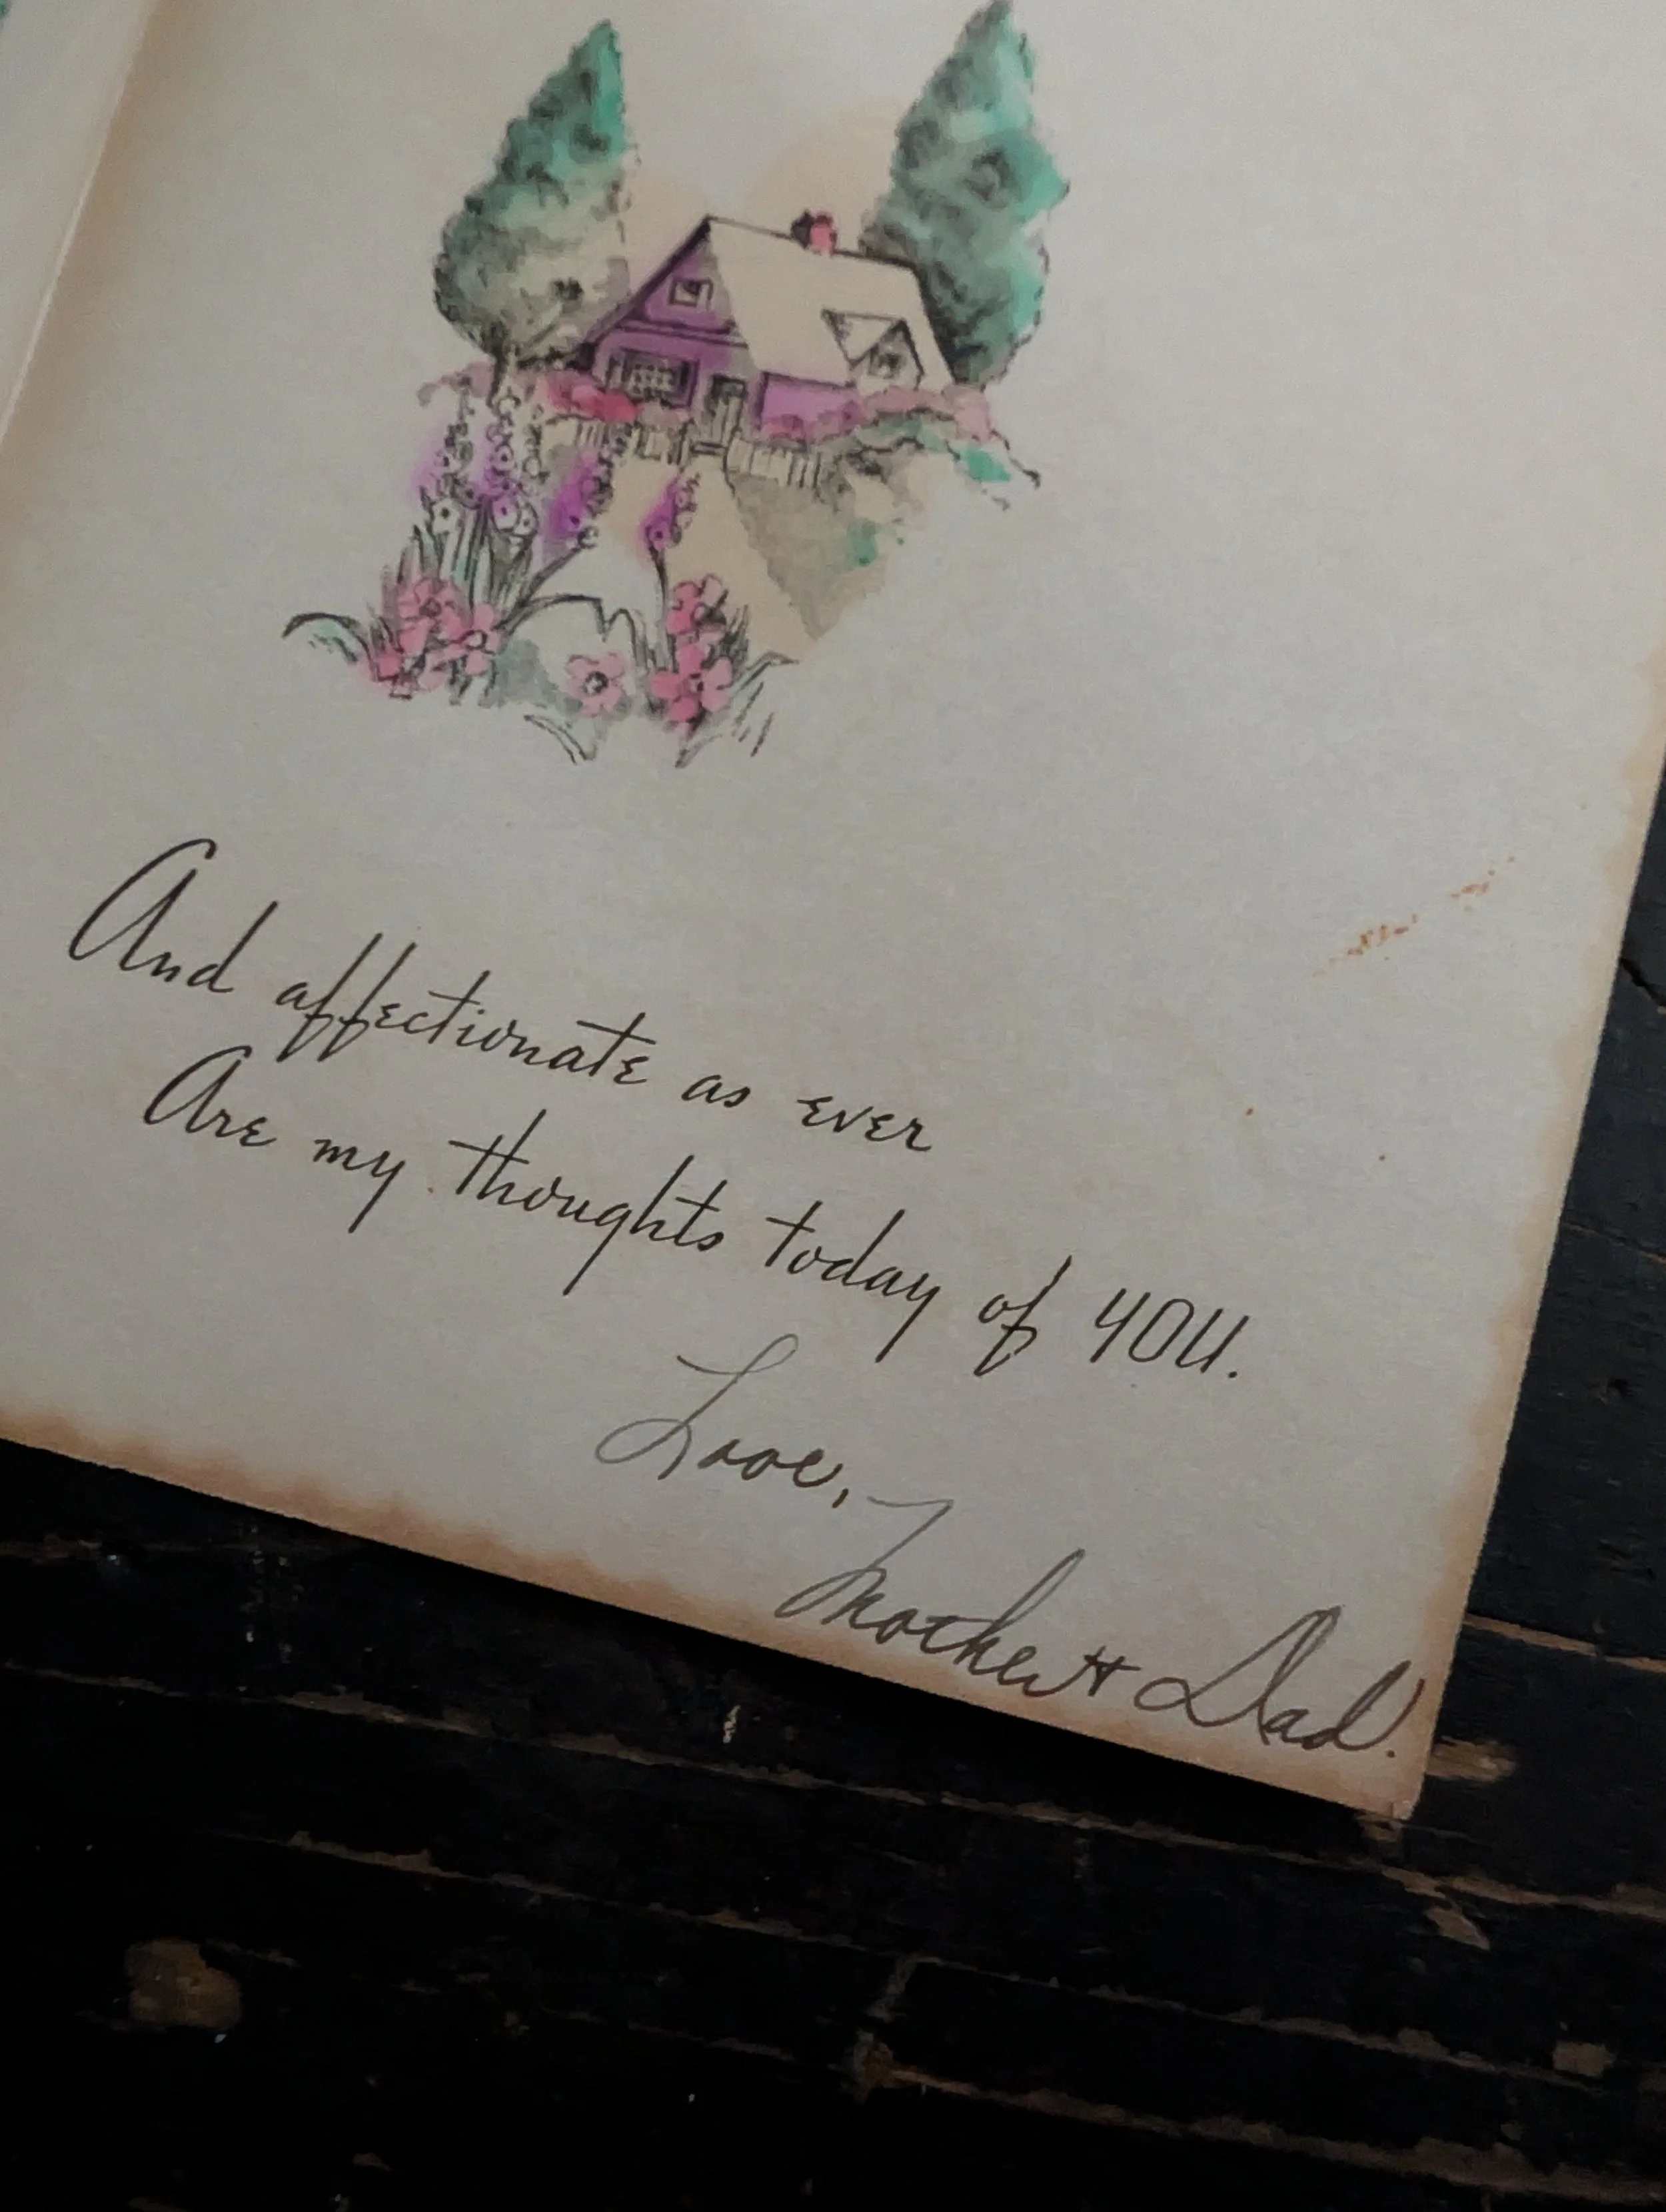 And affectionate as ever
Are my thoughts today of YOU.
Love,
Mother & Dad.